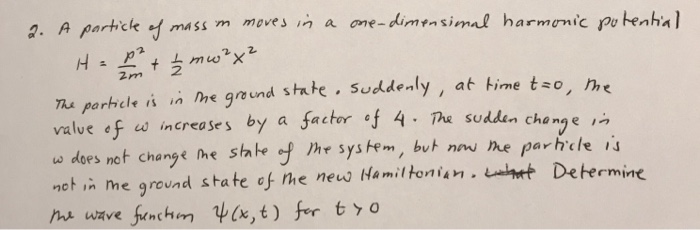 2. A particle of mass m moves in a one-dimensimal harmonic potential
H = p²/2m + 1/2 mω²x²
The particle is in the ground state. Suddenly, at time t=0, the
value of ω increases by a factor of 4. The sudden change in
ω does not change the state of the system, but now the particle is
not in the ground state of the new Hamiltonian. Determine
the wave function ψ(x,t) for t>0